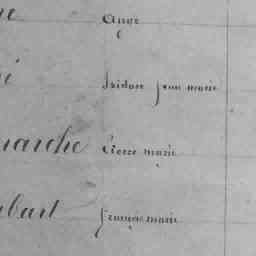 ne Ange
é Isidore jean marie
marche Pierre marie
bart françois marie